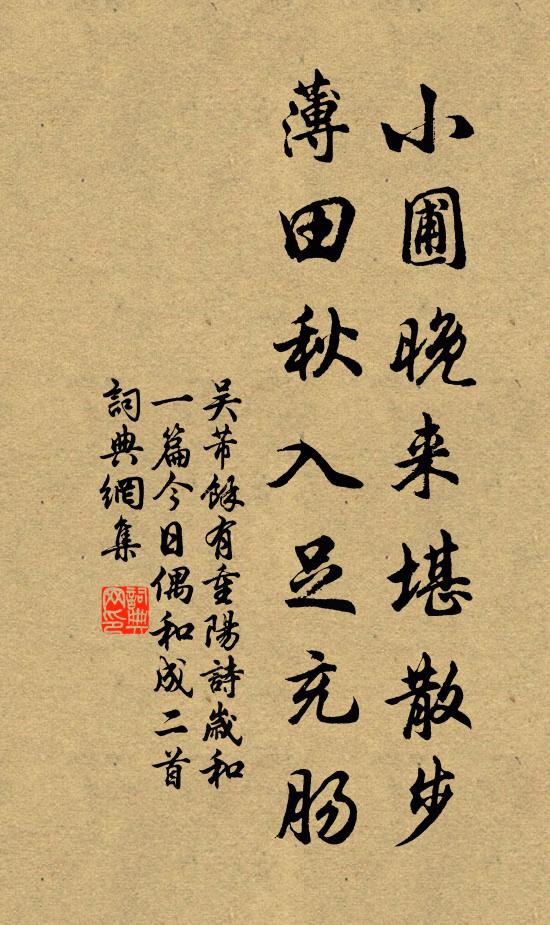 小圃晚来堪散步
薄田秋入足充肠
吴芾餘有重陽詩歲和
一篇今日偶和成二首
詞典網集
詞典网印